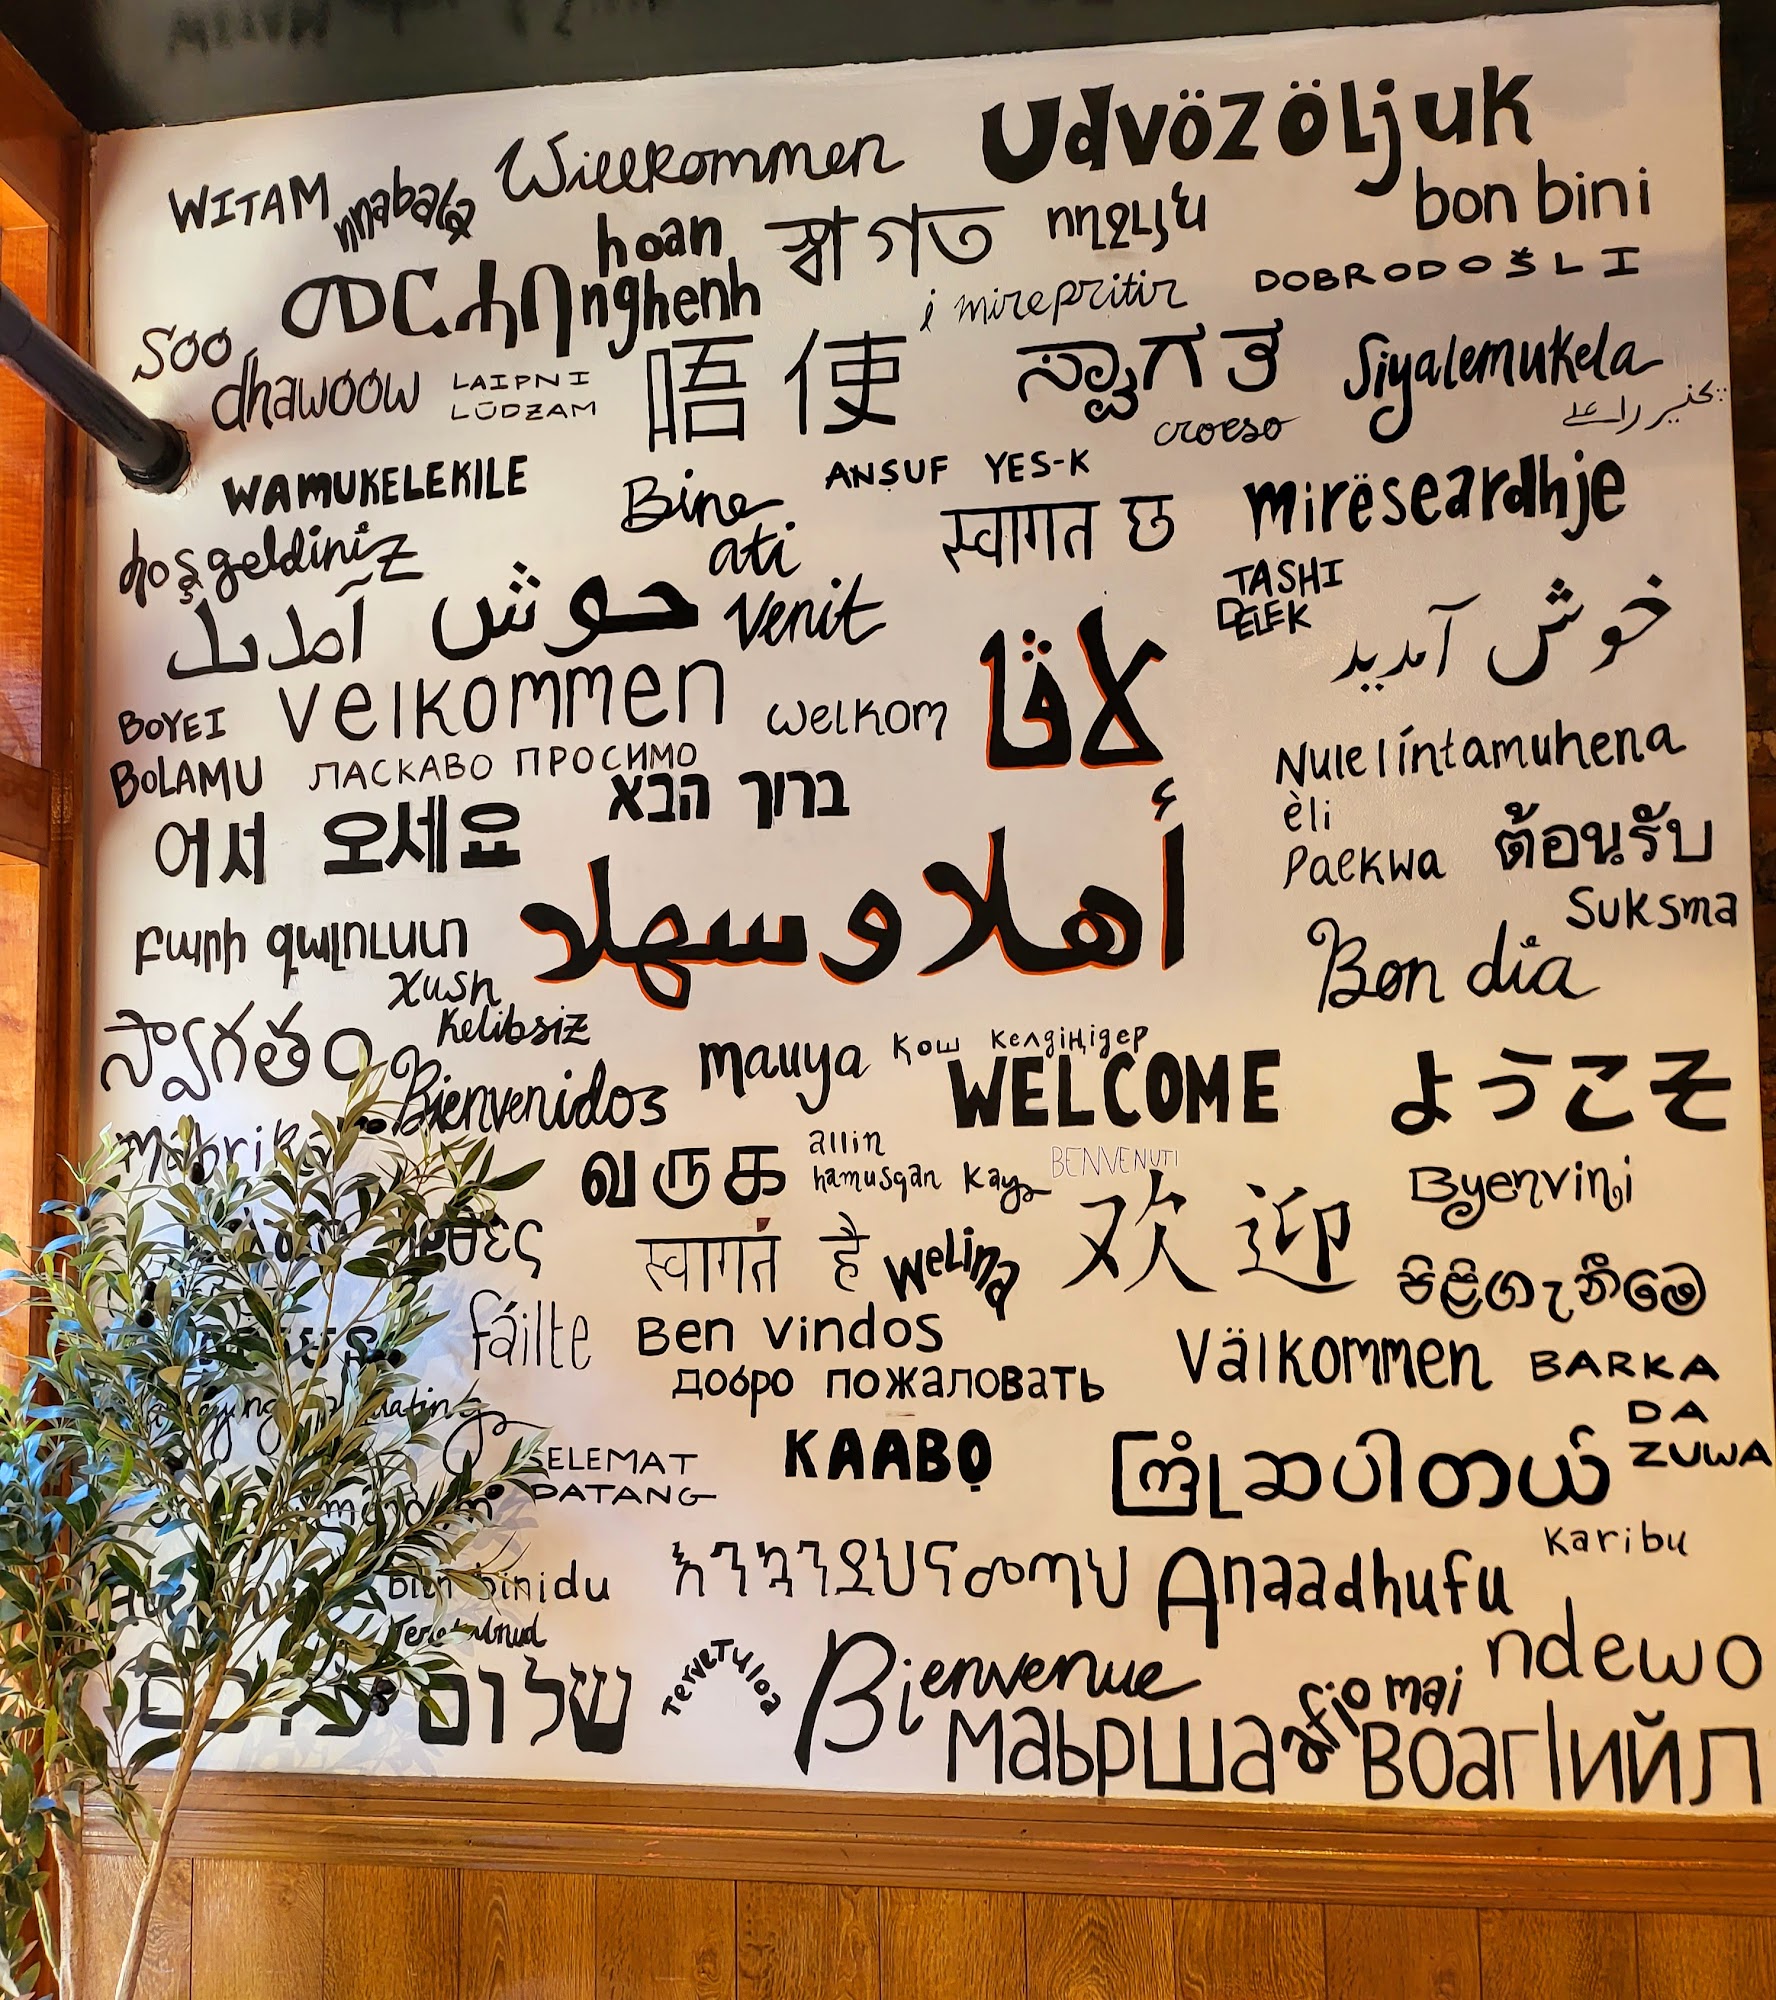 WITAM
nnabata
Willkommen
Udvözöljuk
hoan
nghenh
স্বাগত
ողջույն
bon bini
መርሐበ
i mirepritir
DOBRODOŠLI
Soo
dhawoow
LAIPNI
LŪDZAM
唔使
ಸ್ವಾಗತ
Siyalemukela
croeso
WAMUKELEKILE
Bine
ati
venit
ANṢUF YES-K
स्वागत छ
mirëseardhje
hoşgeldiniz
TASHI
DELEK
خوش آمدید
velkommen
welkom
لاڤا
BOYEI
BOLAMU
ЛАСКАВО ПРОСИМО
ברוך הבא
Nulelíntamuhena
èli
Paekwa
ต้อนรับ
어서 오세요
أهلا وسهلا
Suksma
Բարի գալուստ
Bon dia
Xush
Kelibsiz
స్వాగతం
mauya
қош келдіңідер
WELCOME
ようこそ
Bienvenidos
Mabrika
வருக
allin
hamusqan kays
BENVENUTI
欢迎
Byenvini
स्वागत है
welina
පිළිගැනීමේ
fáilte
Ben vindos
Välkommen
BARKA
DA
ZUWA
добро пожаловать
SELEMAT
DATANG
KAABỌ
ကြိုဆိုပါတယ်
Karibu
እንኳንደህናመጣህ
Anaadhufu
ndewo
שלום
Tervetuloa
Bienvenue
afio mai
Маьрша
ВоагӀийл